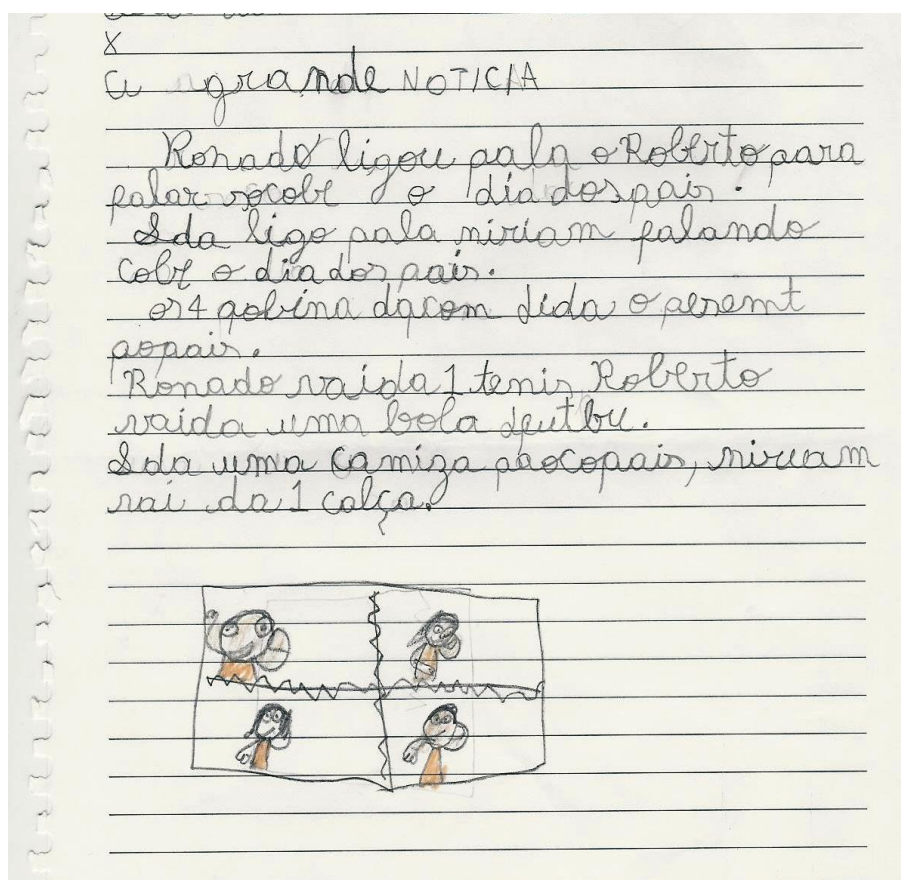 X
a grande NOTICIA
Ronado ligou pala o Roberto para
falar socobe o dia dos pais.
Ida ligo pala miriam falando
cobe o dia dos pais.
os 4 dacom deda o
aopais.
Ronado vaida 1 tenis Roberto
vaida uma bola deutbu.
Ida uma camiza paocopais, miriam
vai da 1 calça.